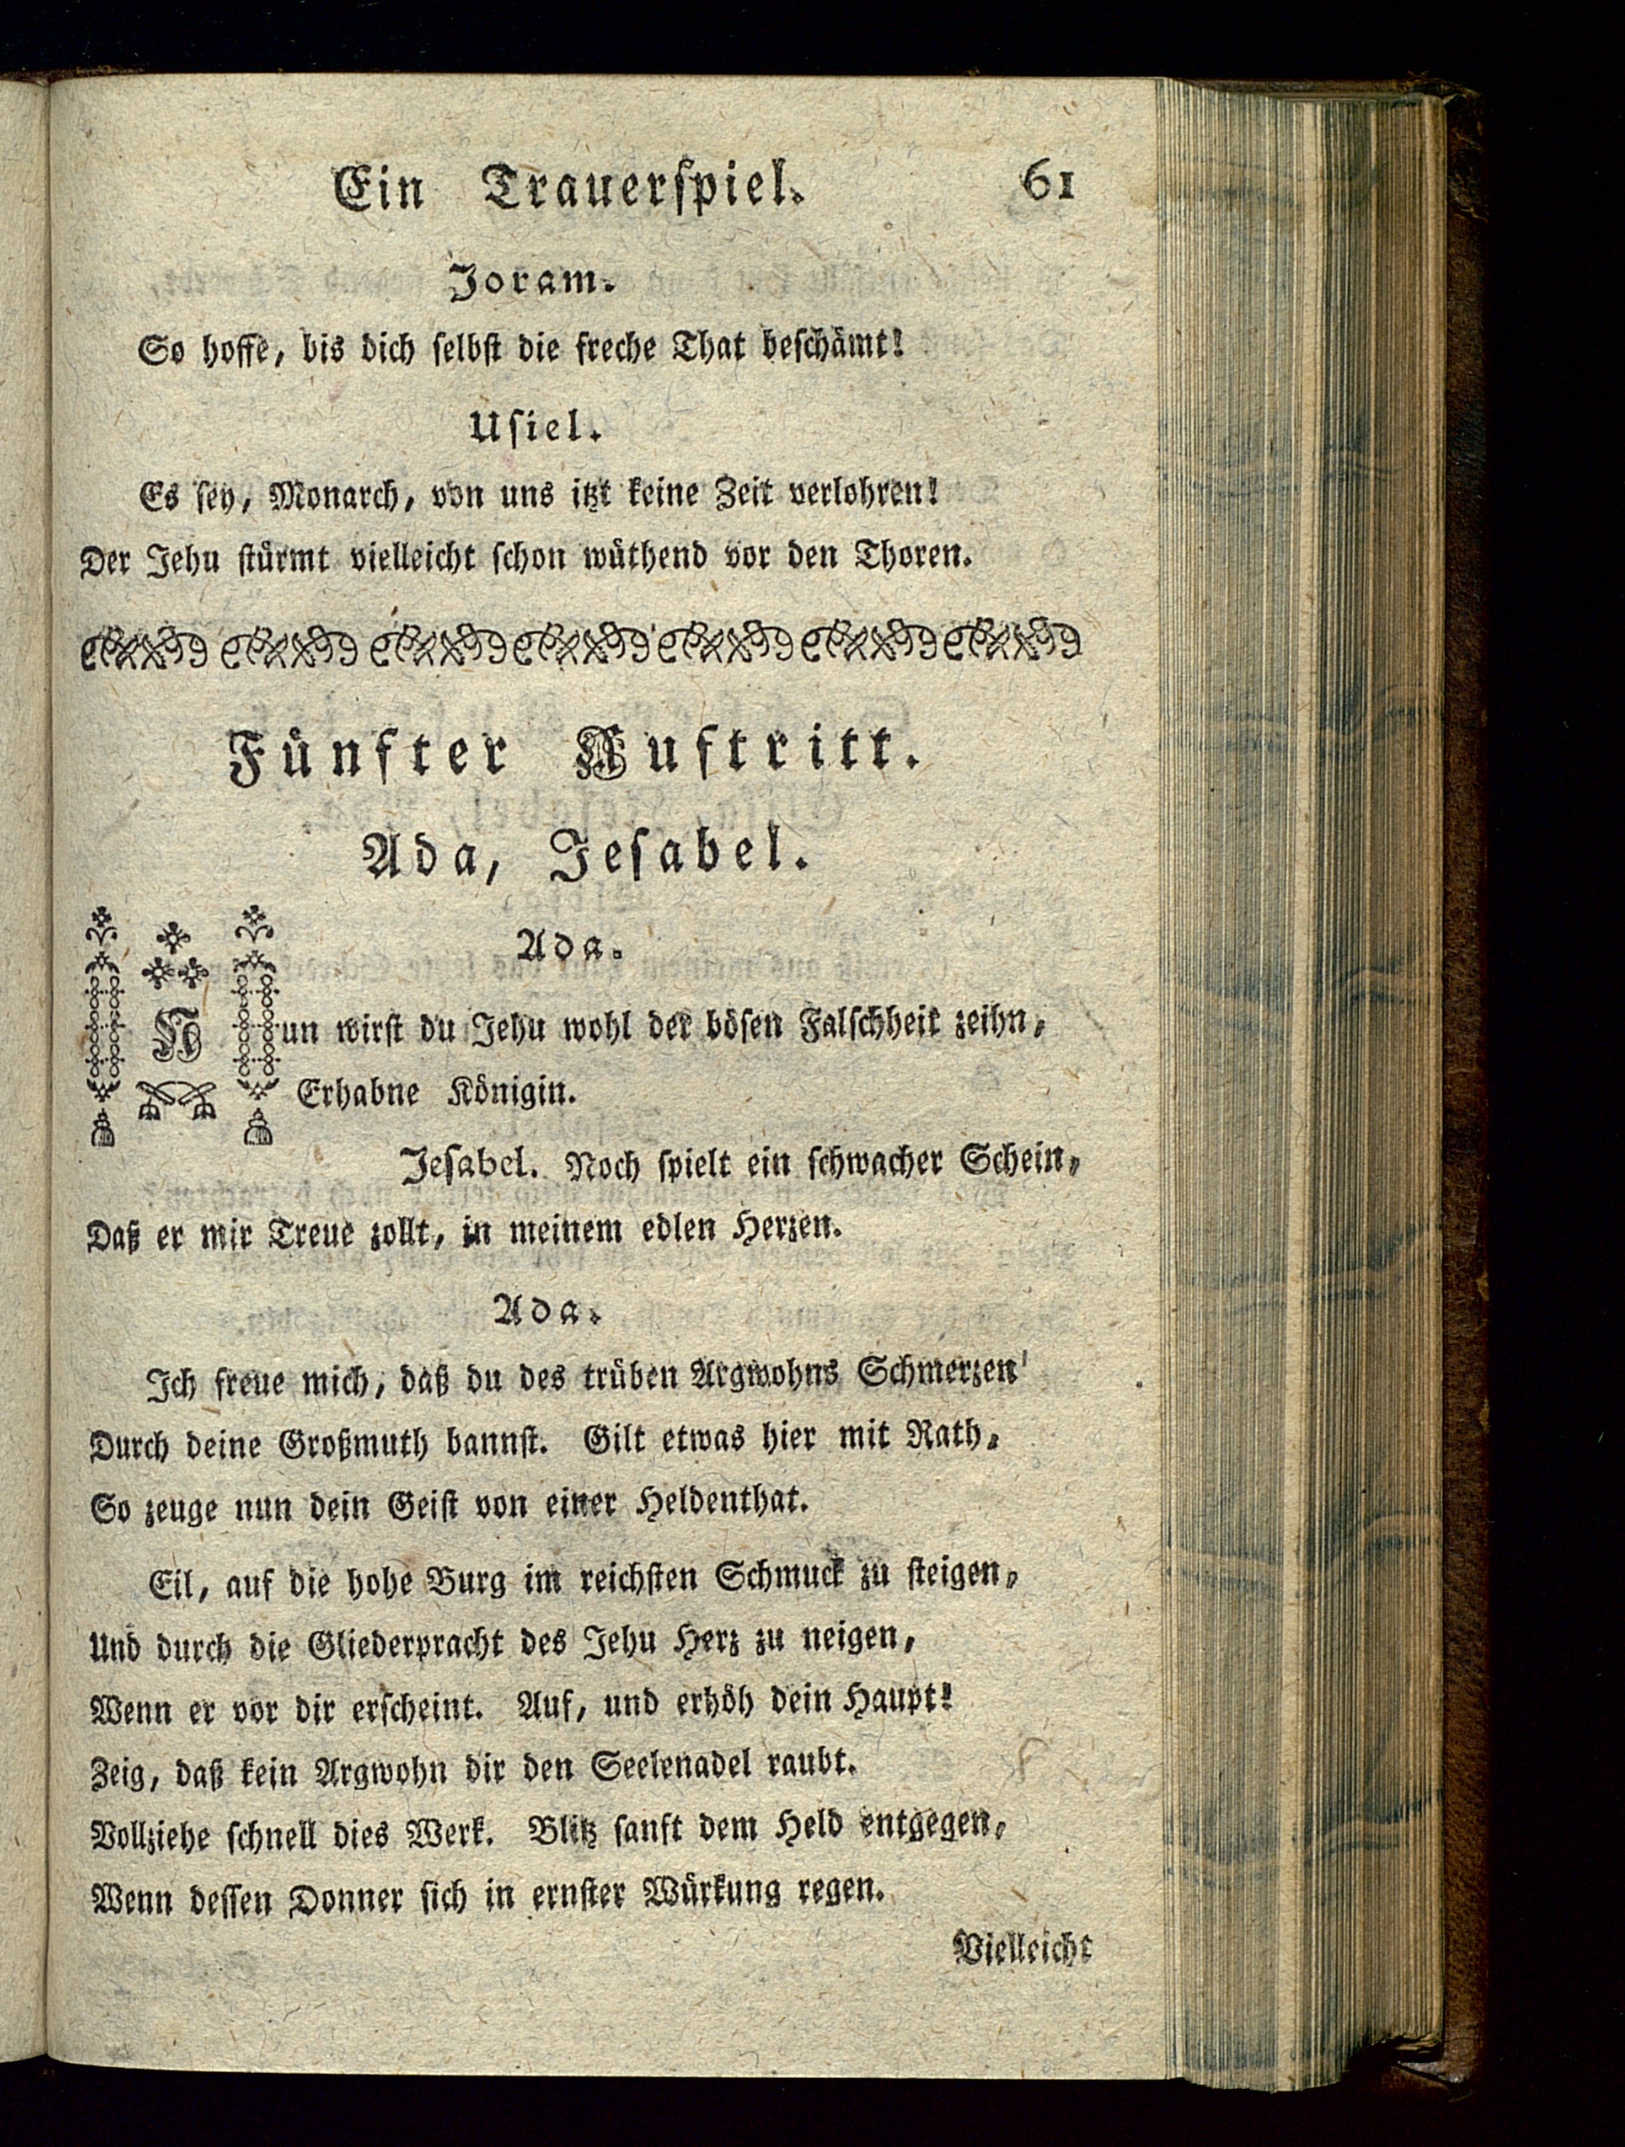 Ein Trauerſpiel. 61
Joram.
So hoffe, bis dich ſelbſt die freche That beſchämt!
Uſiel.
Es ſey, Monarch, von uns itzt keine Zeit verlohren!
Der Jehu ſtürmt vielleicht ſchon wüthend vor den Thoren.
Fünfter Auftritt.
Ada, Jeſabel.
Ada.
Nun wirſt du Jehu wohl der böſen Falſchheit zeihn,
Erhabne Königin.
Jeſabel. Noch ſpielt ein ſchwacher Schein,
Daß er mir Treue zollt, in meinem edlen Herzen.
Ada.
Ich freue mich, daß du des trüben Argwohns Schmerzen
Durch deine Großmuth bannſt. Gilt etwas hier mit Rath,
So zeuge nun dein Geiſt von einer Heldenthat.
Eil, auf die hohe Burg im reichſten Schmuck zu ſteigen,
Und durch die Gliederpracht des Jehu Herz zu neigen,
Wenn er vor dir erſcheint. Auf, und erhöh dein Haupt!
Zeig, daß kein Argwohn dir den Seelenadel raubt.
Vollziehe ſchnell dies Werk. Blitz ſanft dem Held entgegen,
Wenn deſſen Donner ſich in ernſter Würkung regen.
Vielleicht